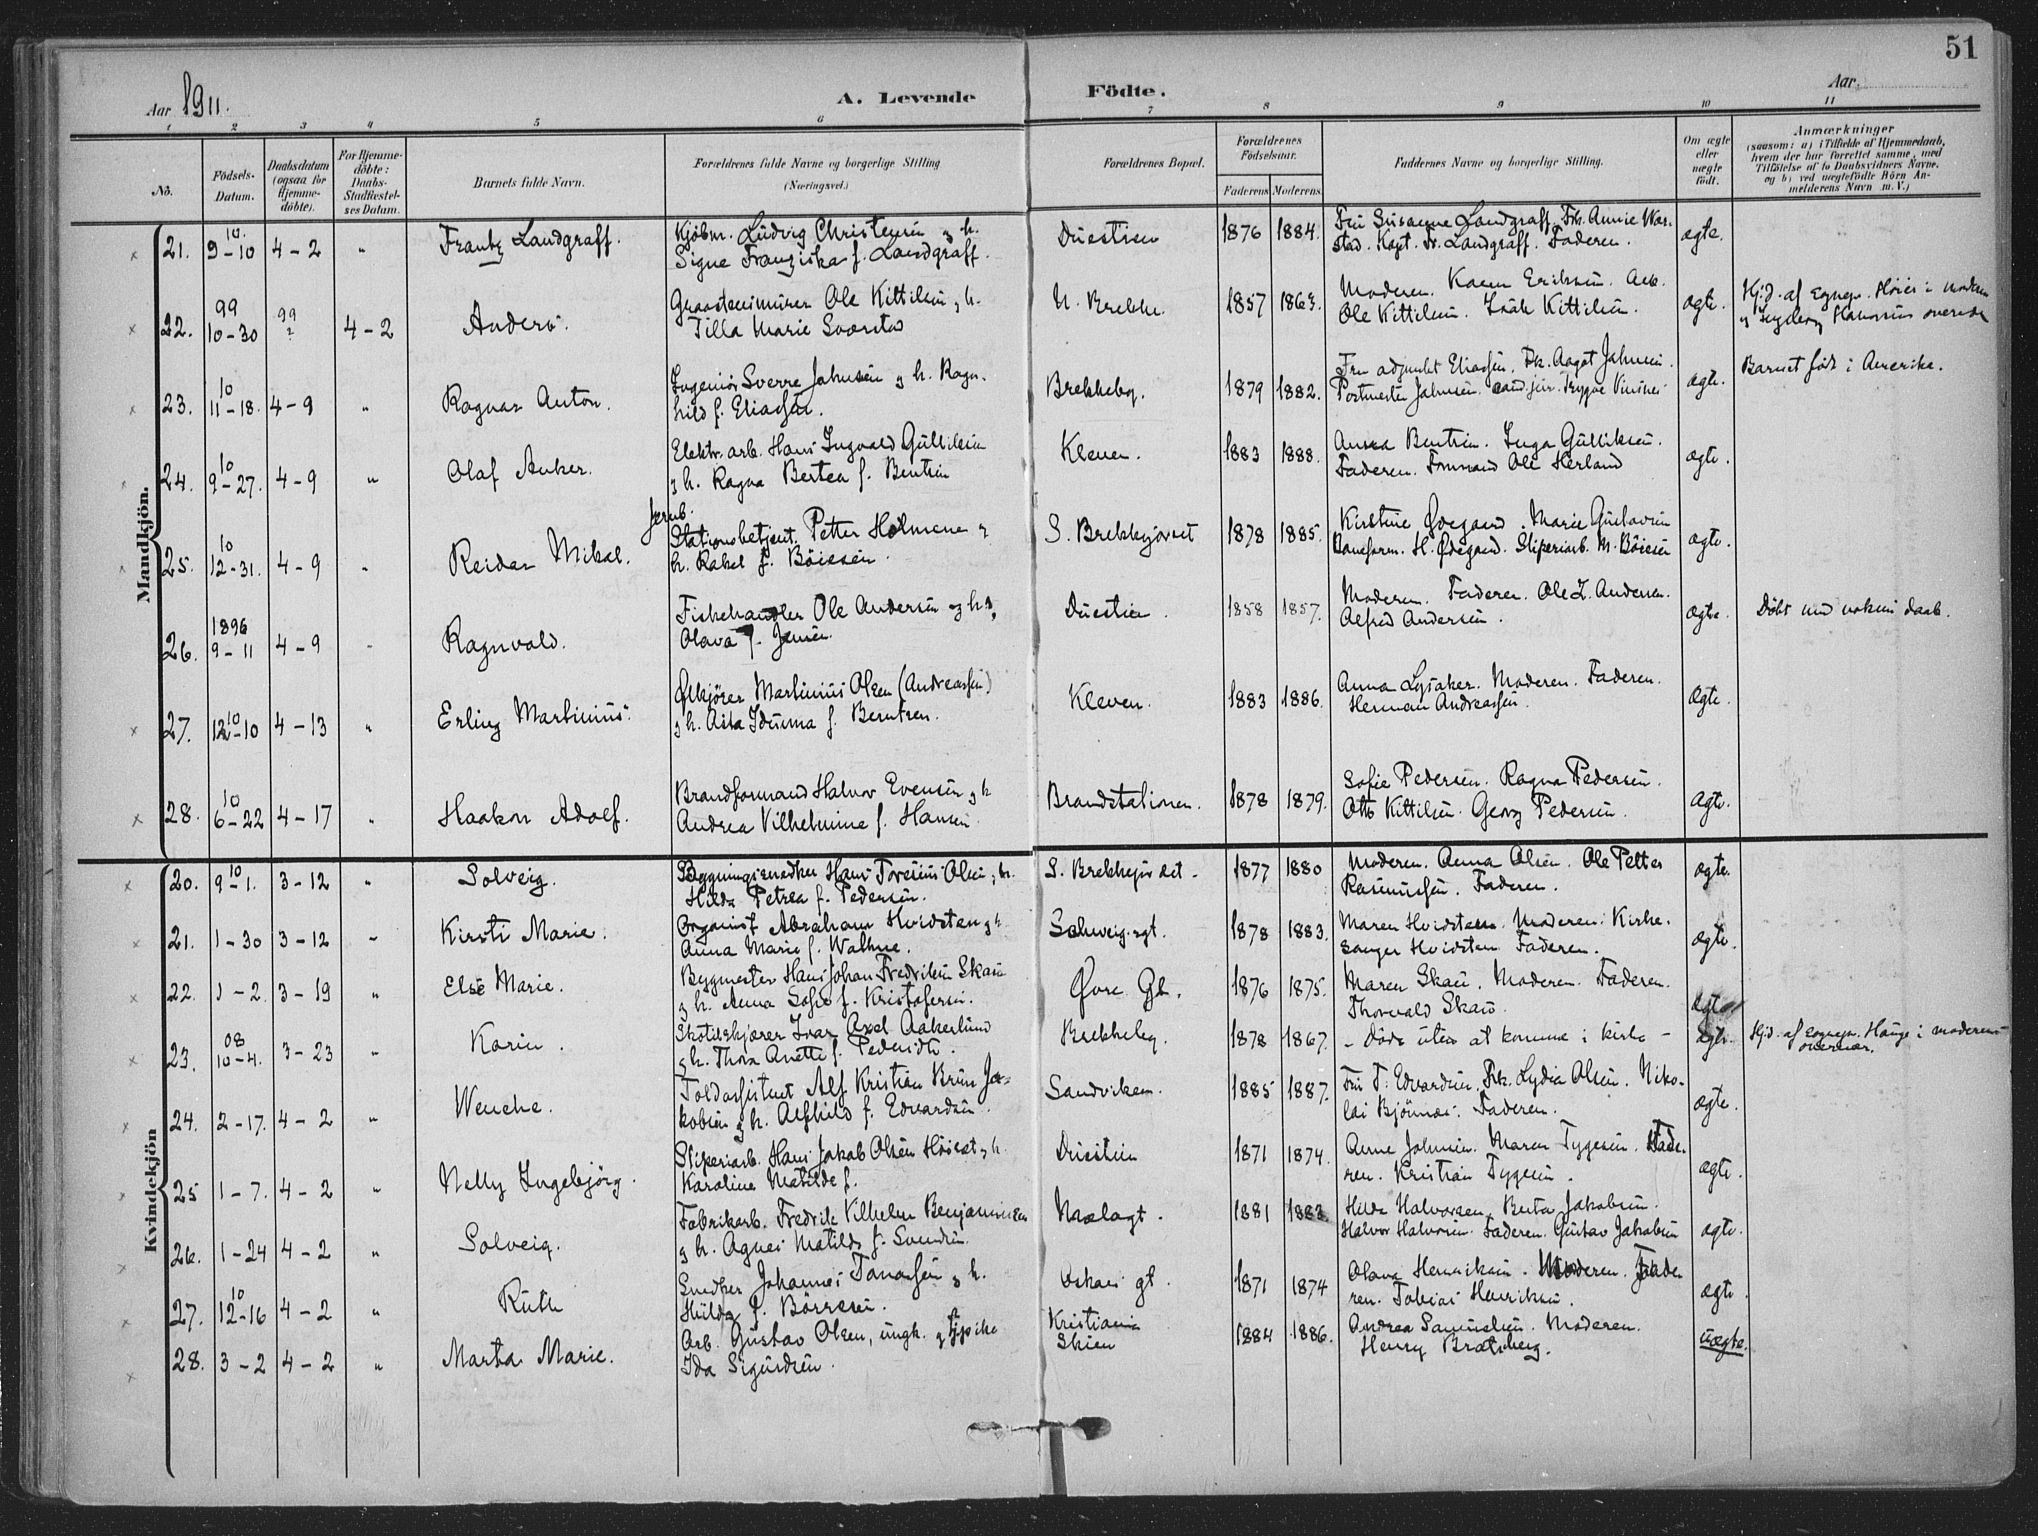 51
Aar 1911.
A. Levende Födte.
Aar
1 2 3 4 5 6 7 8 9 10 11
No.
Födsels-Datum.
Daabsdatum (ogsaa for Hjemme-döbte).
For Hjemme-döbte: Daabs-Stadfæstel-ses Datum.
Barnets fulde Navn.
Forældrenes fulde Navne og borgerlige Stilling (Næringsvei.)
Forældrenes Bopæl.
Forældrenes Fødselsaar.
Faderens Moderens.
Faddernes Navne og borgerlige Stilling.
Om ægte eller uægte födt.
Anmærkninger
(saasom: a) i Tilfælde af Hjemmedaab,
hvem der har forrettet samme, med
Tilföielse af to Daabsvidners Navne.
og b) ved uægtefödte Börn An-
melderens Navn m. V.)
Mandkjön.
21. 10. 9-10 4-2 " Frantz Landgraff. Kjöbm. Ludvig Christensen g h.
Signe Franziska f. Landgraff. Duestien 1876 1884. Fru Susanne Landgraff. Frk. Annie War-
stad. Kapt. Fr. Landgraff. Faderen. ægte.
22. 99 10-30 99 4-2 Anders. Graastensmurer Ole Kittilsen g h.
Tilla Marie N. Brekke. 1857 1863. Moderen. Karen Eriksen. Arb.
Ole Kittilsen. Isak Kittilsen. ægte. Hjd. af i moderen
23. 10 11-18. 4-9 " Ragnar Anton. Ingeniör Sverre Jahnsen g h. Ragn-
hild f. Eliassen. Brekkeby. 1879 1882. Fru adjunkt Eliassen. Frk. Aagot Jahnsen.
Postmester Jahnsen. cand. jur. Trygve ægte. Barnet född i Amerika.
24. 10 9-27. 4-9 " Olaf Anker. Elektr. arb. Hans Ingvald Gulliksen
g h. Ragna Bertea f. Bentsen Kleven. 1883 1888. Anna Bentsen. Inga Gulliksen.
Faderen. Formand Ole Herland ægte.
25. 10 12-31. 4-9 " Reidar Mikal. Jernb.
Stationsbetjent Petter Holmene g
h. Rakel f. Böiesen. S. Brekkejordet 1878 1885. Kirstine Ødegaard. Marie Gustavsen
Baneform. H. Ødegaard. Sliperiarb. M. Böiesen ægte.
26. 1896 9-11 4-9 " Ragnvald. Fiskehandler Ole Andersen og h.
Olava f. Jensen. Duestien. 1858 1857. Moderen. Faderen. Ole Z. Andersen.
Alfred Andersen. ægte. Döbt ved voksen daab.
27. 10 12-10 4-13 " Erling Martinius. Ølkjörer Martinius Olsen (Andreassen)
g h. Asta Idunna f. Berntsen. Kleven. 1883 1886. Anna Lysaker. Moderen. Faderen.
Herman Andreassen. ægte.
28. 10 6-22 4-17 " Haakon Adolf. Brandformand Halvor Evensen g h
Andrea Vilhelmine f. Hansen Brandstationen. 1878 1879. Sofie Pedersen. Ragna Pedersen.
Otto Kittilsen. Georg Pedersen. ægte.
Kvindekjön
20. 10 9-1. 3-12 " Solveig. Bygningssnedker Hans Olsen g h.
Hilda Petrea f. Pedersen. S. Brekkejordet. 1877 1880 Moderen. Anna Olsen. Ole Petter
Rasmussen. Faderen. ægte.
21. 1-30 3-12 " Kirsti Marie. Organist Abraham Hvidsten g h
Anna Marie f. Walhne. Schweig. gt. 1878 1883. Maren Hvidsten. Moderen. Kirke-
sanger Hvidsten. Faderen. ægte.
22. 1-2. 3-19 " Else Marie. Bygmester Hans Johan Fredriksen Skau
g h. Anna Sofie f. Kristofersen. Øvre Gt. 1876 1875. Maren Skau. Moderen. Faderen.
Thorvald Skau. ægte
23. 08 10-4. 3-23 " Karin. Skotöiskjærer Ivar Axel Aakerlund
g h. Thora Anette f. Brekkeby. 1878 1867. - Döde uten at komme i kirke - ægte. Hjd. af sogнepr. Hauge i moderens
24. 2-17. 4-2 " Wenche. Toldassistent Alf Kristian Brun Ja-
kobsen g h. Alfhild f. Edvardsen. Sandviken. 1885 1887. Fru T. Edvardsen. Frk. Lydia Olsen. Niko-
lai Björnnes. Faderen. ægte.
25 1-7. 4-2 " Nelly Ingebjörg. Sliperiarb. Hans Jakob Olsen Höiset g h.
Karoline Matilde f. Duestien 1871 1874. Anne Johnsen. Maren Tygesen. Fade-
ren. Kristian Tygesen. ægte.
26. 1-24 4-2 " Solveig. Fabrikarb. Fredrik Vilhelm Benjaminsen
g h. Agnes Matilde f. Svendsen. Mælagt. 1881 1883. Hilda Halvorsen. Berta Jakobsen.
Halvor Halvorsen. Faderen. Gustav Jakobsen ægte.
27. 10 12-16 4-2 " Ruth Snedker Johannes g h.
Hulda f. Börresen. Oskars gt. 1871 1874 Olava Henriksen. Moderen. Fade-
ren. Tobias Henriksen. ægte.
28. 3-2 4-2 " Marta Marie. Arb. Gustav Olsen, ungk. g pike
Ida Sigurdsen. Kristiania
Skien 1884 1886. Andrea Samuelsen. Moderen.
Henry Bratsberg. uægte.